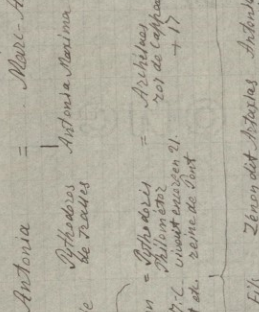 Antonia = Marc-A
Pythodoros
de Tralles
Antonia Maxima
= Pythodoris
Philométor
vivait encore en 21.
reine de Pont
= Archélaos
roi de Cappa
+ 17
Zénon dit Artaxias